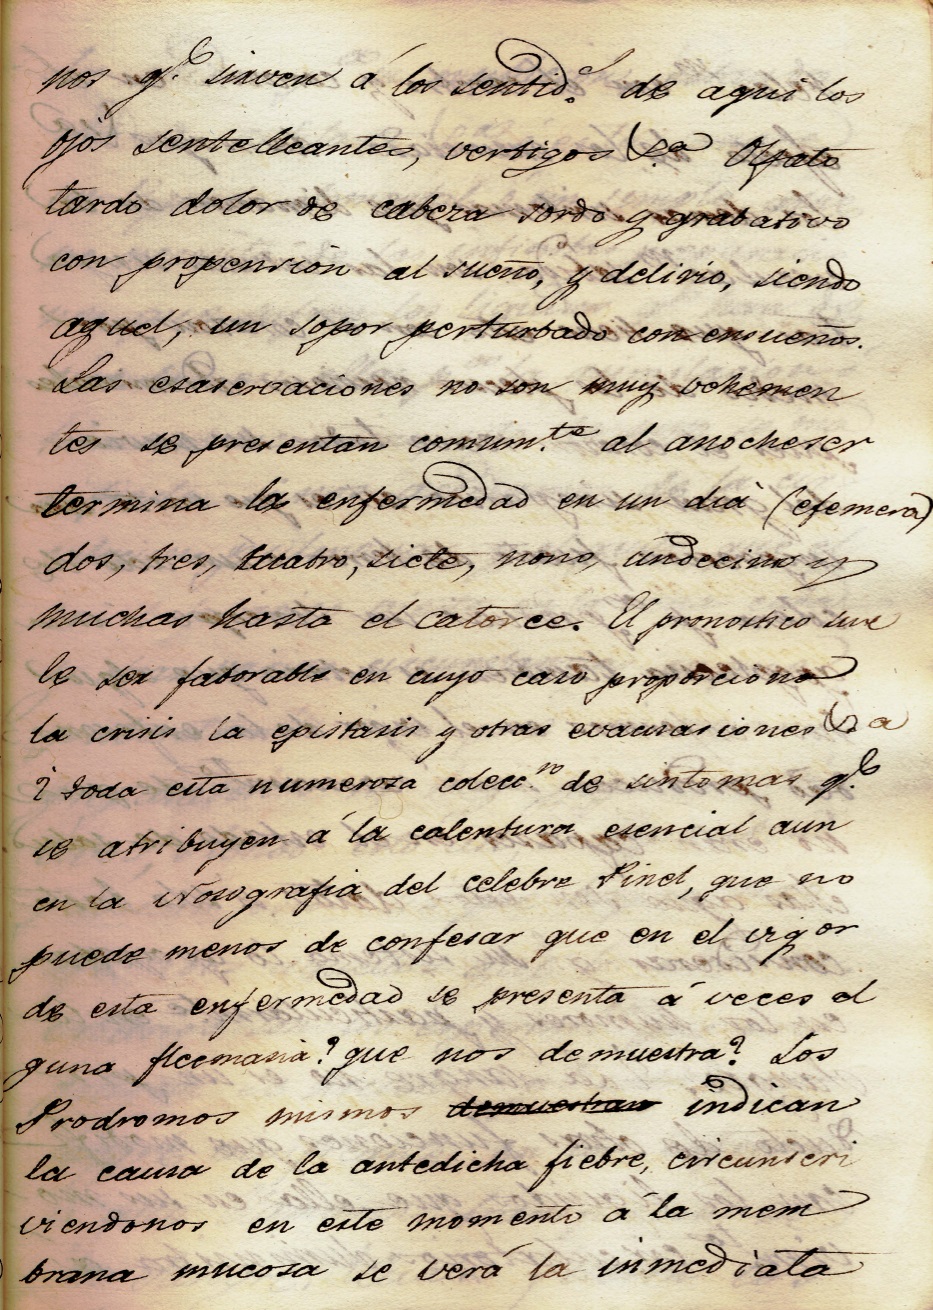 nos q.e sirven á los sentid.s de aqui los
ojos sentelleantes, vertigos &a Olfato
tardo dolor de cabeza sordo y grabativo
con propension al sueño, y delirio, siendo
aquel, un sopor perturbado con ensueños.
Las esaserbaciones no son muy vehemen
tes se presentan comunm.te al anocheser
termina la enfermedad en un dia (efemera)
dos, tres, cuatro, siete, nono, undecimo y
muchas hasta el catorce. El pronostico sue
le ser faborable en cuyo caso proporciona
la crisis la epistasis y otras evacuasiones &a
¿Toda esta numerosa colecc.n de sintomas q.e
se atribuyen á la calentura esencial aun
en la Nosografia del celebre Pinel, que no
puede menos de confesar que en el vigor
de esta enfermedad se presenta á veces al
guna flecmasia? que nos demuestra? Los
Prodromos mismos demuestran indican
la causa de la antedicha fiebre, circunscri
viendonos en este momento á la mem
brana mucosa se verá la inmediata